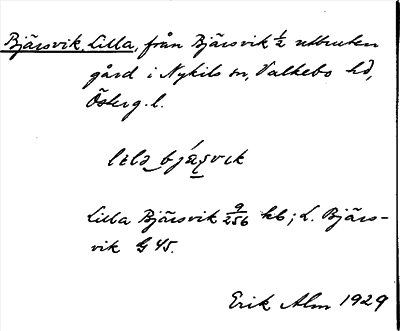 Bjärsvik, Lilla, från Bjärsvik ½ utbruten
gård i Nykils sn, Valkebo hd,
Österg. l.
Lilla Bjärsvik 9/256 kb; L. Bjärs-
vik G 45.
Erik Alm 1929